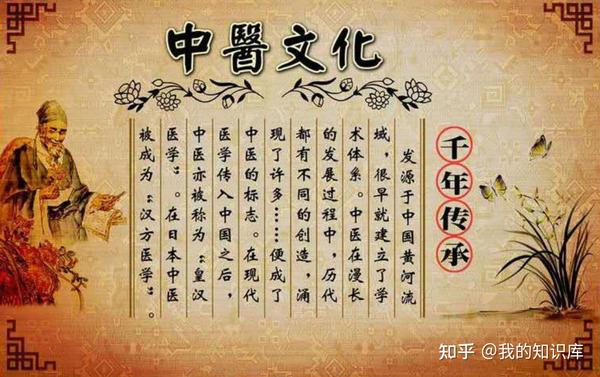 中醫文化
千年传承
发源于中国黄河流
域，很早就建立了学
术体系。中医在漫长
的发展过程中，历代
都有不同的创造，涌
现了许多……便成了
中医的标志。在现代
医学传入中国之后，
中医亦被称为“皇汉
医学”。在日本中医
被成为“汉方医学”。
知乎 @我的知识库